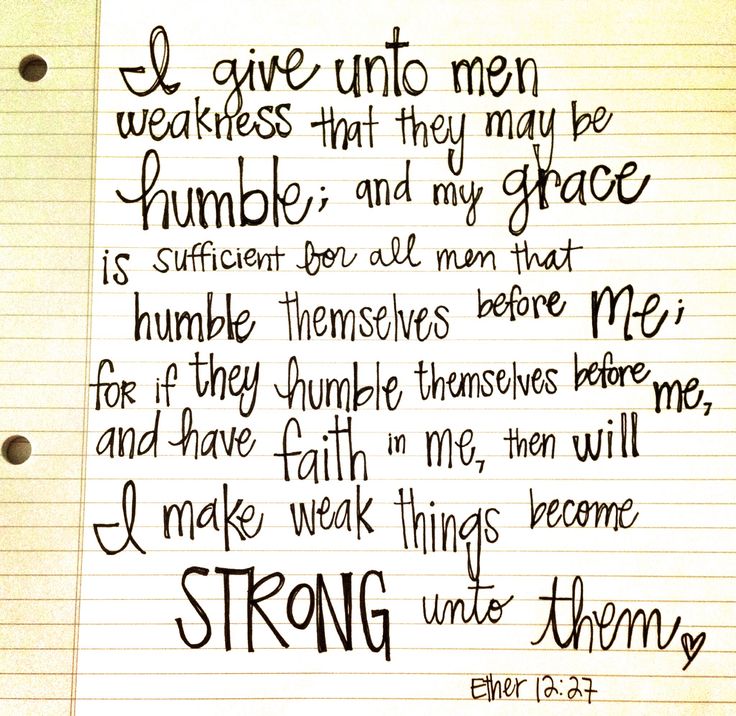 I give unto men
weakness that they may be
humble; and my grace
is sufficient for all men that
humble themselves before me;
for if they humble themselves before me,
and have faith in me, then will
I make weak things become
STRONG unto them
Ether 12:27